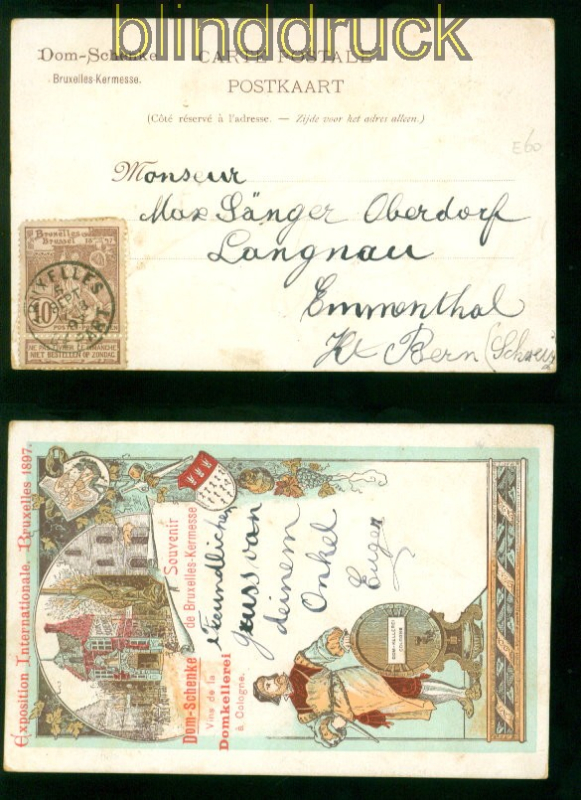 blinddruck
Dom-Schenke
Bruxelles-Kermesse.
CARTE POSTALE
POSTKAART
(Côté réservé à l'adresse. — Zijde voor het adres alleen.)
E60
Monsieur
Max Sänger Oberdorf
Langnau
Emmenthal
Kt Bern (Schweiz
Bruxelles
Brussel 18 97
10
NE PAS LIVRER LE DIMANCHE
NIET BESTELLEN OP ZONDAG
Exposition Internationale. Bruxelles 1897.
Souvenir
de Bruxelles-Kermesse
Dom-Schenke
Vins de la
Domkellerei
à Cologne.
Freundlichen
Gruss von
deinem
Onkel
Eugen
DOM-KELLEREI
COLOGNE